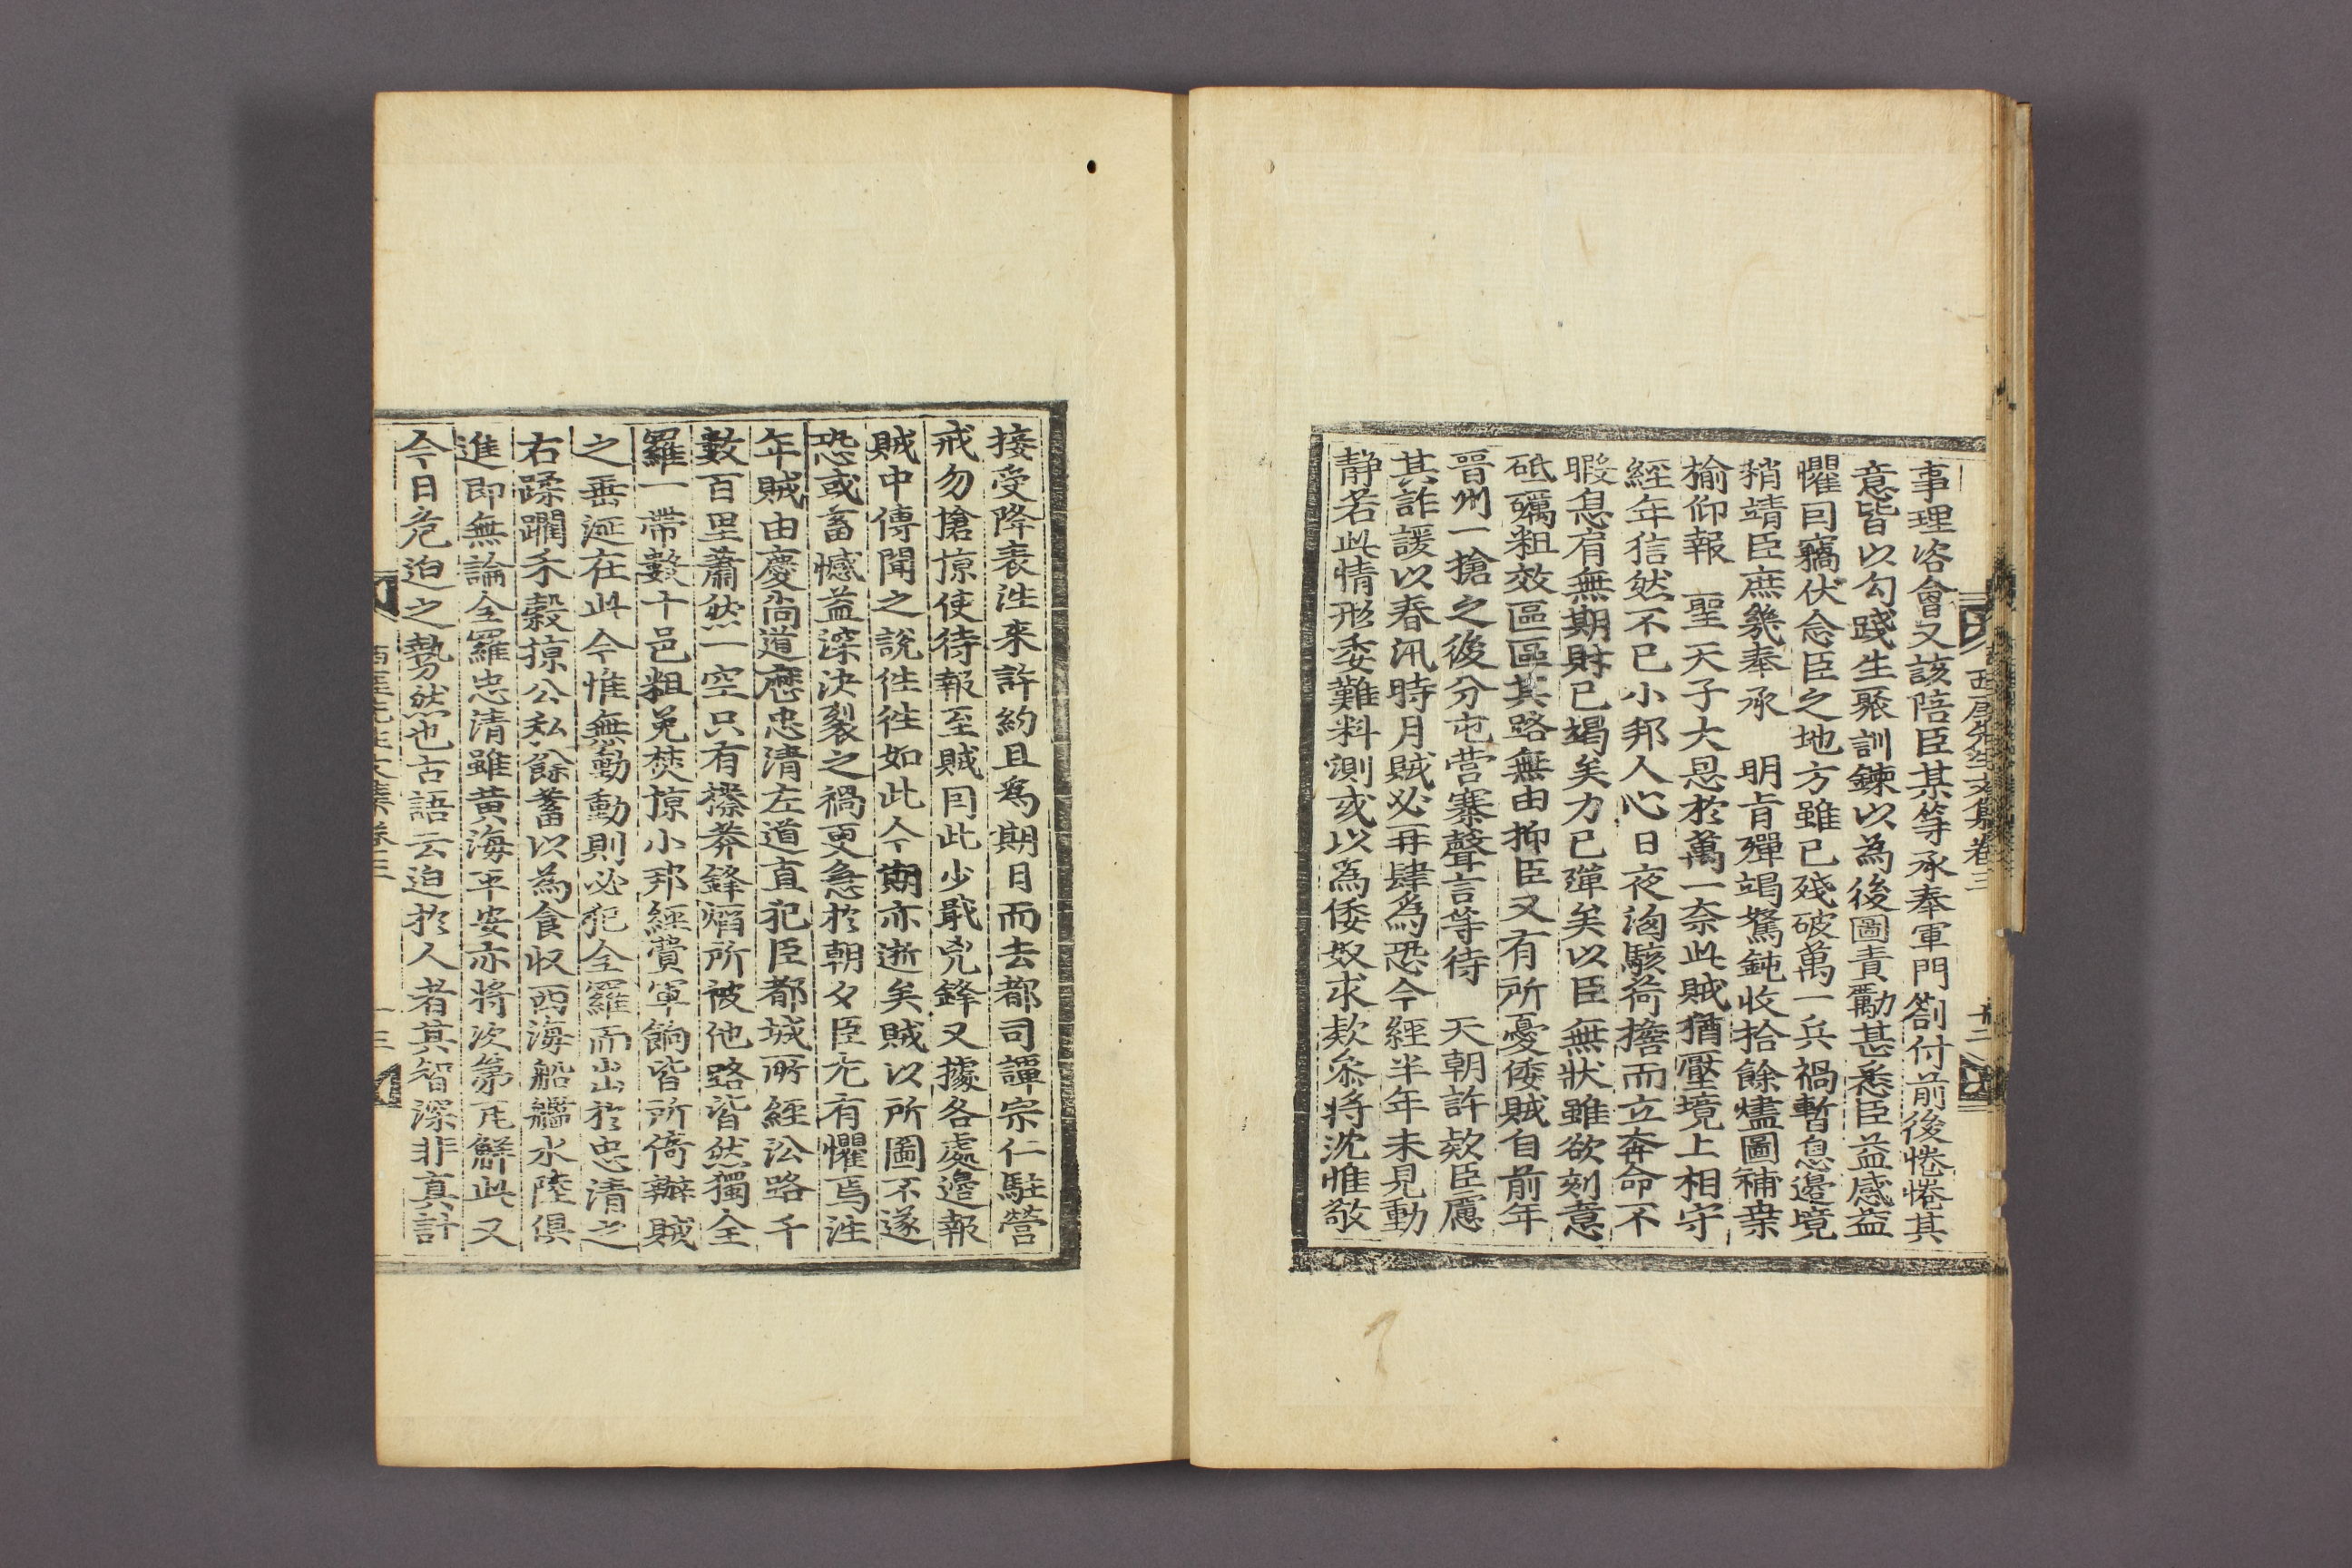 西厓先生文集卷三 十二
事理咨會又該陪臣某等承奉軍門劄付前後惓惓其
意皆以勾踐生聚訓鍊以為後圖責勵甚悉臣益感益
懼囘竊伏念臣之地方雖已殘破萬一兵禍暫息邊境
稍靖臣庶幾奉承 明旨殫竭駑鈍收拾餘燼圖補桑
榆仰報 聖天子大恩於萬一奈此賊猶壓境上相守
經年信然不已小邦人心日夜洶駭荷擔而立奔命不
暇息肩無期財已竭矣力已殫矣以臣無狀雖欲刻意
砥礪粗效區區其路無由抑臣又有所憂倭賊自前年
晉州一搶之後分屯營寨聲言等待 天朝許欵臣慮
其詐諼以春汛時月賊必再肆為恐今經半年未見動
静若此情形委難料測或以為倭奴求欵叅将沈惟敬
接受降表往來許約且為期日而去都司譚宗仁駐營
戒勿搶掠使待報至賊囘此少戢兇鋒又據各處邊報
賊中傳聞之說徃徃如此今期亦逝矣賊以所圖不遂
恐或畜憾益深決裂之禍更急於朝夕臣尤有懼焉往
年賊由慶尚道歷忠清左道直犯臣都城所經沿路千
數百里蕭然一空只有榛莽鋒熖所被他路皆然獨全
羅一帶數十邑粗免焚掠小邦經費軍餉皆所倚辦賊
之垂涎在此今惟無動動則必犯全羅而出於忠清之
右蹂躙禾穀掠公私餘蓄以為食収西海船艦水陸俱
進即無論全羅忠清雖黄海平安亦将次第瓦觧此又
今日危迫之勢然也古語云迫於人者其智深非真計
西厓先生文集卷三 十三